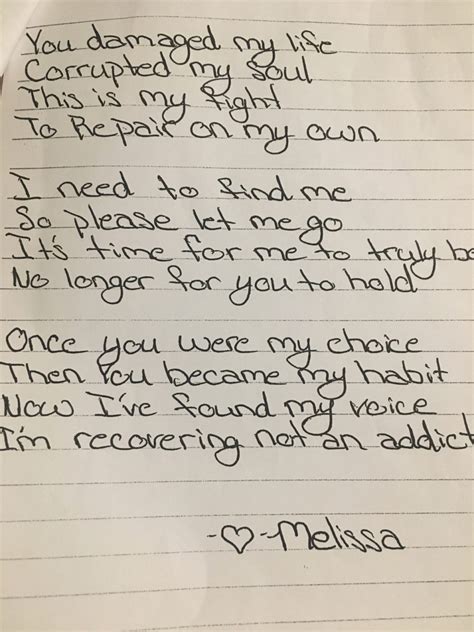 You damaged my life
Corrupted my Soul
This is my fight
To Repair on my own
I need to find me
So please let me go
It's time for me to truly be
No longer for you to hold
Once you were my choice
Then You became my habit
Now I've found my voice
I'm recovering not an addict
-♡-Melissa